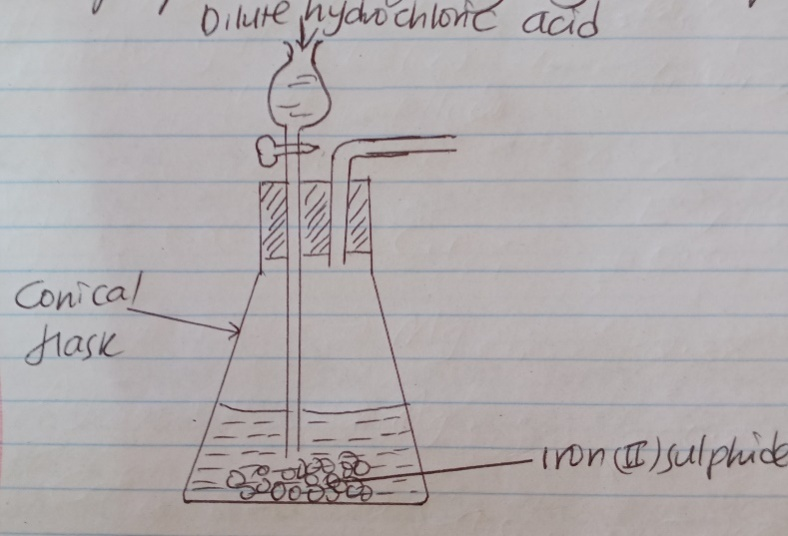 Dilute hydrochloric acid
Conical
flask
iron (II) sulphide